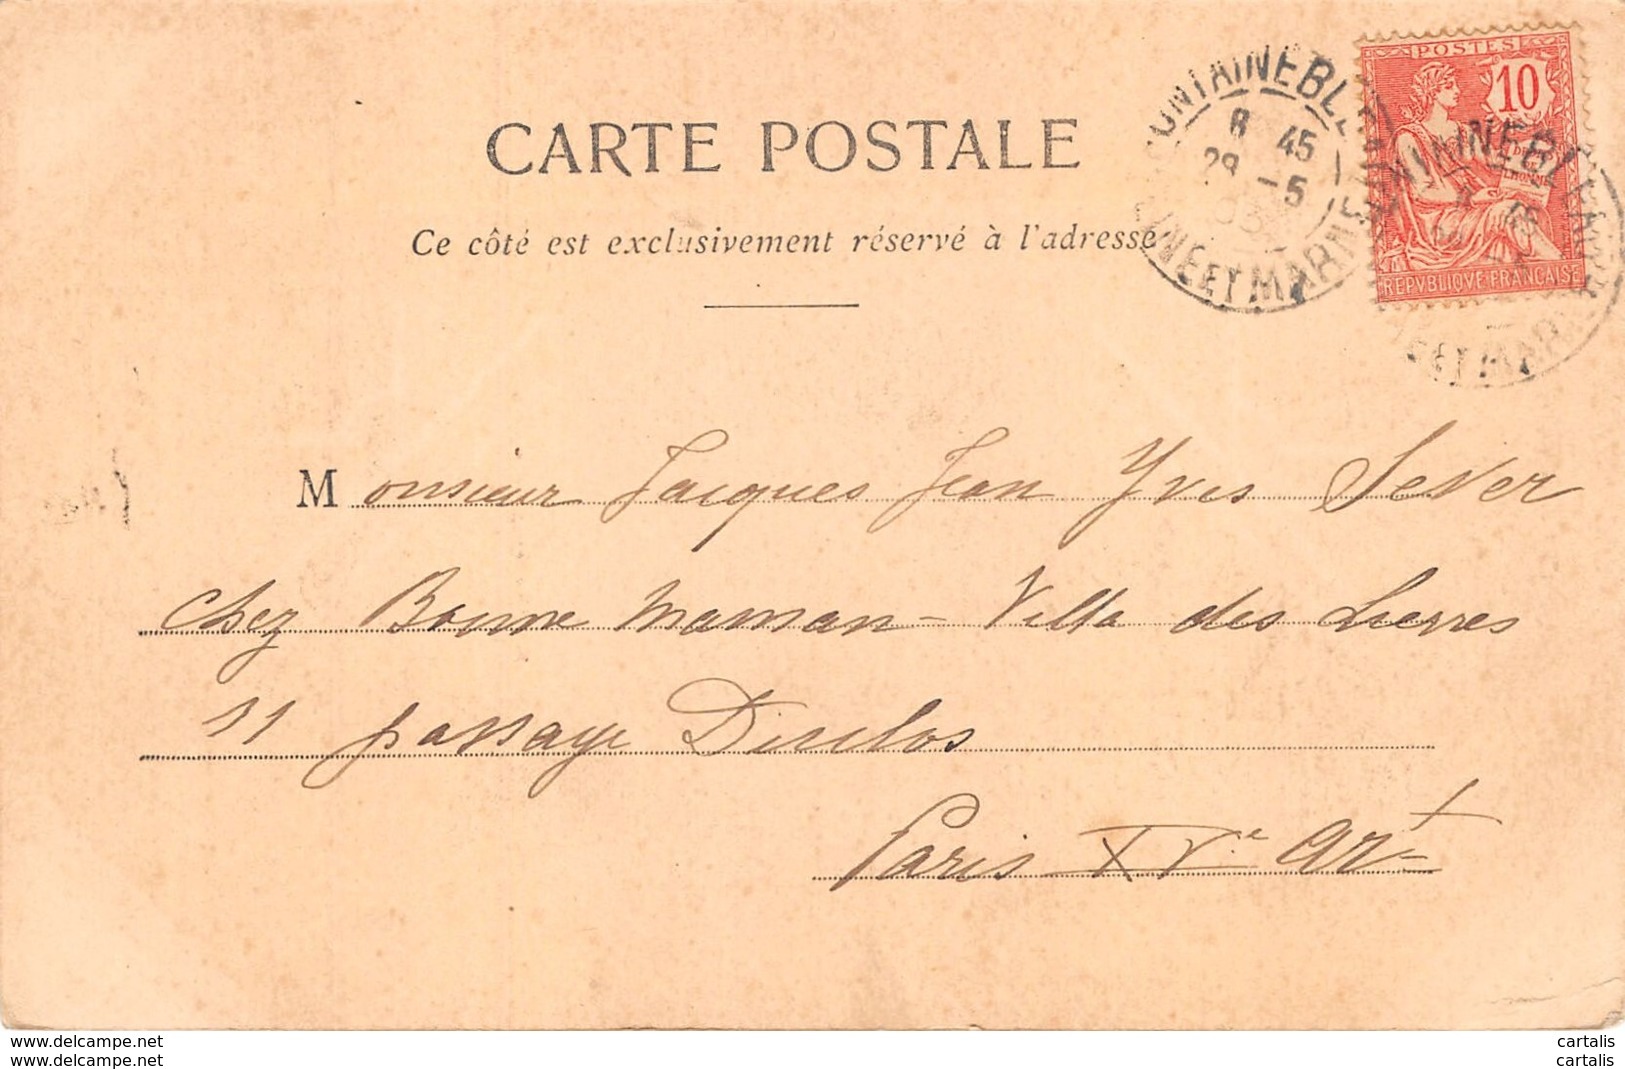 POSTES
10
REPVBLIQVE FRANÇAISE
8 45
29 -5
03
CARTE POSTALE
Ce côté est exclusivement réservé à l'adresse
Monsieur Jacques Jean Yves Sever
chez Bonne maman - Villa des Lierres
11 passage Duclos
Paris XVe Art
www.delcampe.net
www.delcampe.net
cartalis
cartalis